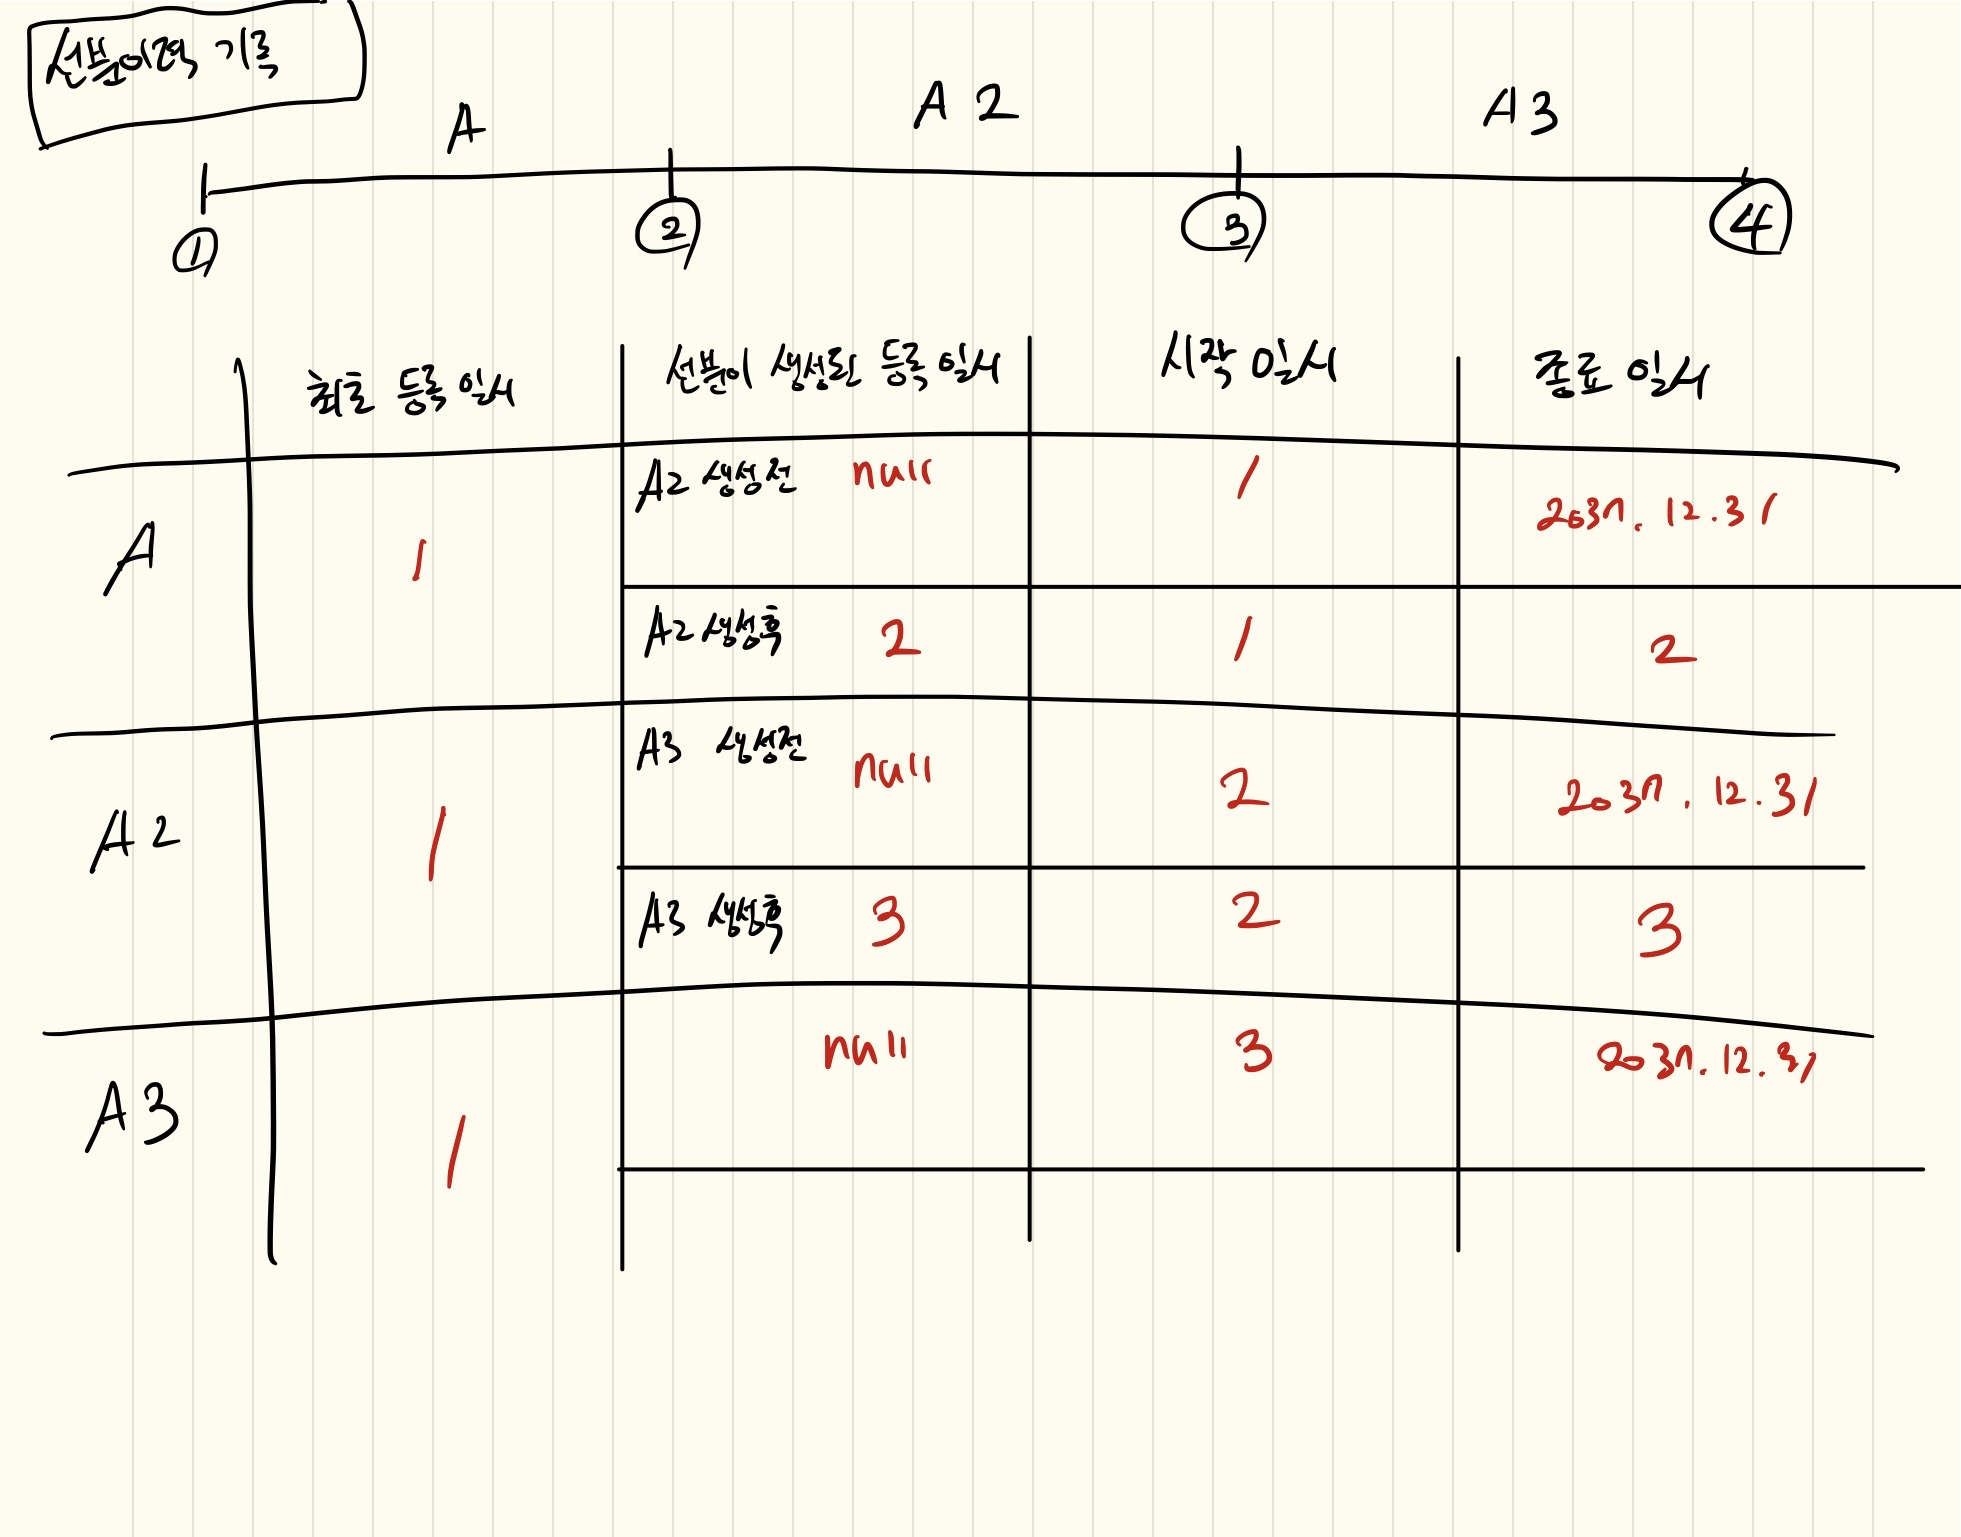 선분이력 기록
A A2 A3
① ② ③ ④
최초 등록 일시 선분이 생성된 등록 일시 시작 일시 종료 일시
A 1 A2 생성전 null 1 2037.12.31
A2 생성후 2 1 2
A2 1 A3 생성전 null 2 2037.12.31
A3 생성후 3 2 3
A3 1 null 3 2037.12.31